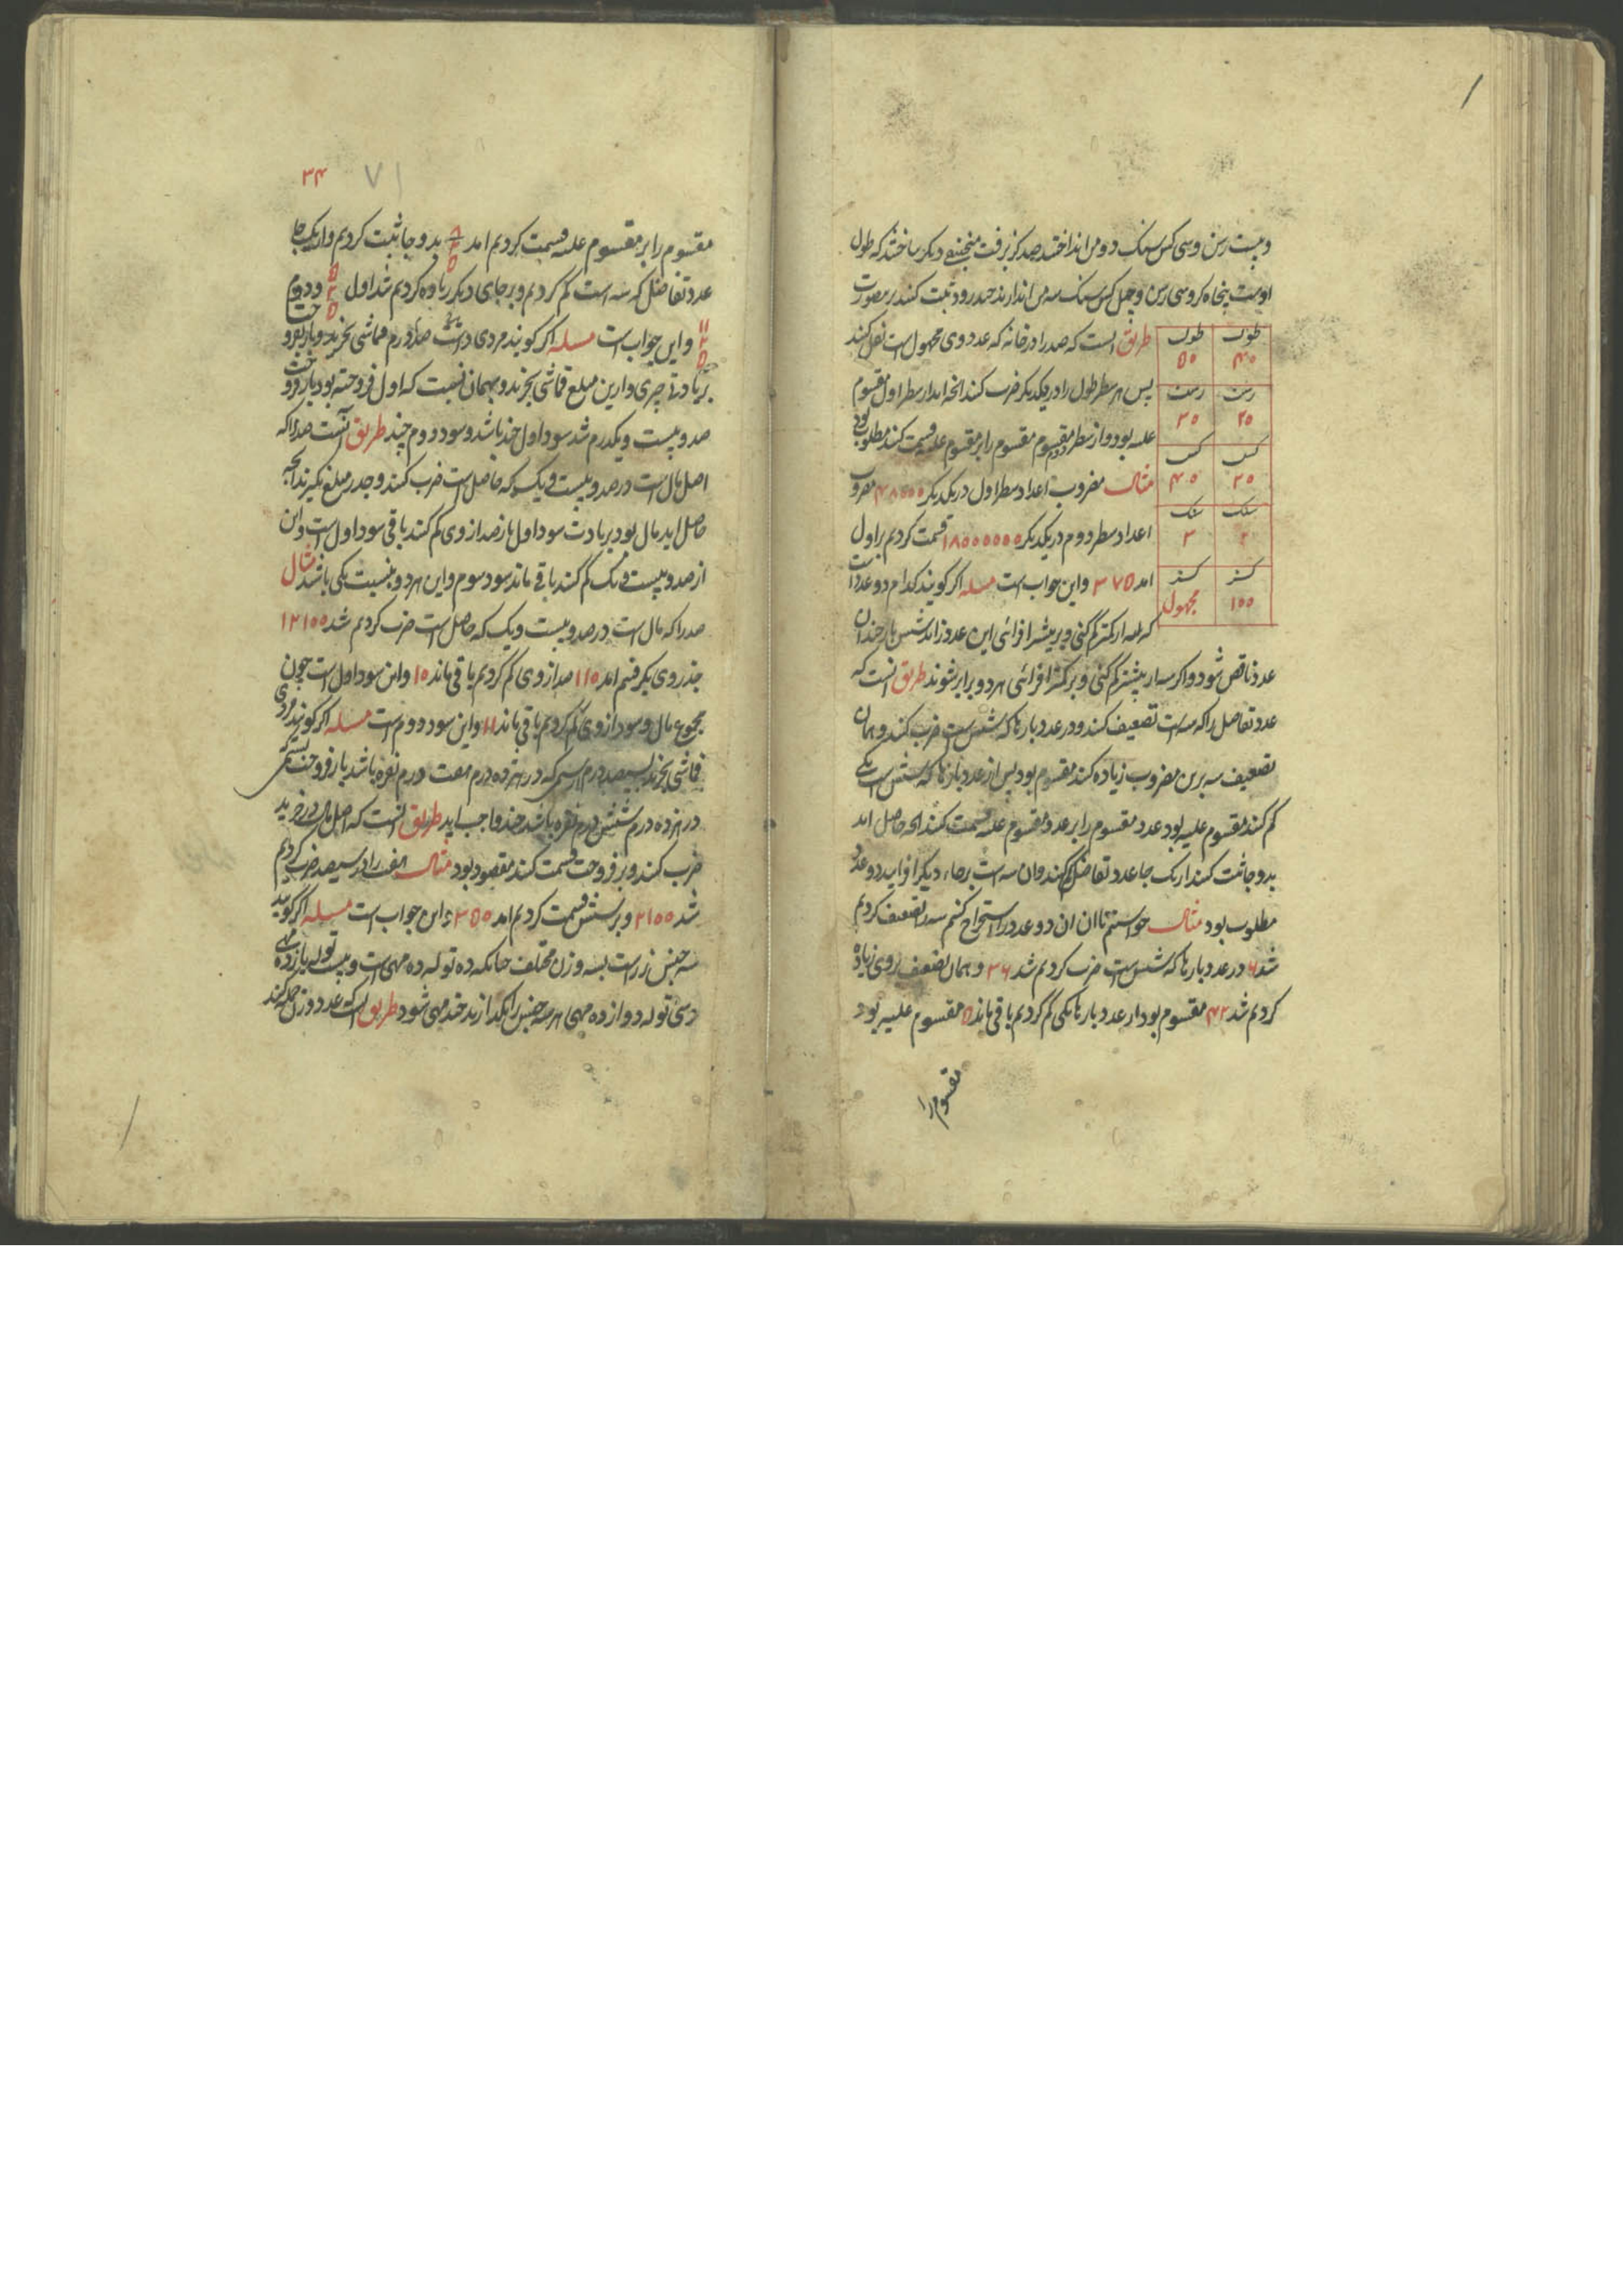 و بیست رسن و سی کس سنک دو من انداختند صد کز برفت منجنیقی دیکر ساختند که طول
او بیست پنجاه کز و سی رسن و چهل کس سنک سه من اندازند چند رود ثبت کنند برین صورت
طول طول
۴۰ ۵۰
رسن رسن
۲۰ ۳۰
کس کس
۳۰ ۴۰
سنک سنک
۲ ۳
کز کز
۱۰۰ مجهول
طریق انست که صد را در خانه که عدد وی مجهول است نقل کنند
پس هر سطر طول را در یکدیکر ضرب کنند انچه اید از سطر اول مقسوم
علیه بود و از سطر دوم مقسوم مقسوم را بر مقسوم علیه قسمت کنند مطلوب بود
مثال مضروب اعداد سطر اول در یکدیکر ۴۸۰۰۰ مضروب
اعداد سطر دوم در یکدیکر ۱۸۰۰۰۰۰۰ قسمت کردیم بر اول
امد ۳۷۵ و این جواب است مسله اکر کویند کدام دو عدد است
که سه از کمتر کم کنی و بر بیشتر افزائی این عدد زائد شش بار چندان
عدد ناقص شود و اکر سه از بیشتر کم کنی و بر کمتر افزائی هر دو برابر شوند طریق انست که
عدد تفاضل را که سه است تضعیف کنند و در عدد بارها که شش است ضرب کنند و همان
تضعیف سه برین مضروب زیاده کنند مقسوم بود پس از عدد بارها که شش است یکی
کم کنند مقسوم علیه بود عدد مقسوم را بر عدد مقسوم علیه قسمت کنند انچه حاصل امد
بدو جا ثبت کنند از یک جا عدد تفاضل کم کنند و ان سه است بر جاء دیکر افزایند دو عدد
مطلوب بود مثال خواستیم تا ان دو عدد را استخراج کنیم سه را تضعیف کردیم
شد ۶ در عدد بارها که شش است ضرب کردیم شد ۳۶ و همان تضعیف بروی زیاده
کردیم شد ۴۲ مقسوم بود از عدد بارها یکی کم کردیم باقی ماند ۵ مقسوم علیه بود
مقسوم را
۳۴ ۷۱
مقسوم را بر مقسوم علیه قسمت کردیم امد ۸ ۲ ۵ بدو جا ثبت کردیم و از یک جا
عدد تفاضل که سه است کم کردیم و بر جای دیکر زیاده کردیم شد اول ۵ ۲ ۵ و دوم
۱۱ ۲ ۵ و این جواب است مسله اکر کویند مردی داشت صد درم قماشی بخرید و باز بفروخت
بزیادتی چیزی و ازین مبلغ قماشی بخرید و بهمان نسبت که اول فروخته بود باز فروخت
صد و بیست و یکدرم شد سود اول چند باشد و سود دوم چند طریق آنست صد را که
اصل مال است در صد و بیست و یک که حاصل است ضرب کنند و جذر مبلغ بکیرند انچه
حاصل اید مال بود بزیادت سود اول باز صد از وی کم کنند باقی سود اول است و این
از صد و بیست و یک کم کنند باقی ماند سود سوم و این هر دو بنسبت یکی باشد مثال
صد را که مال است در صد و بیست و یک که حاصل است ضرب کردیم شد ۱۲۱۰۰
جذر وی بکرفتیم امد ۱۱۰ صد از وی کم کردیم باقی ماند ۱۰ و این سود اول است چون
مجموع مال و سود از وی کم کردیم باقی ماند ۱۱ و این سود دوم است مسله اکر کویند مردی
قماشی بخرید بسیصد درم
در هر ده درم شش درم نقره باشد چند واجب اید طریق انست که اصل مال در خرید
ضرب کنند و بر فروخت قسمت کنند مقصود بود مثال هفت را در سیصد ضرب کردیم
شد ۲۱۰۰ و بر شش قسمت کردیم امد ۳۵۰ و این جواب است مسیله اکر کویند
سه جنس زر است بسه وزن مختلف چنانکه ده توله ده مهی است و بیست توله یازده مهی
و سی توله دوازده مهی هر سه جنس را بکدازند چند مهی شود طریق انست که عدد وزن